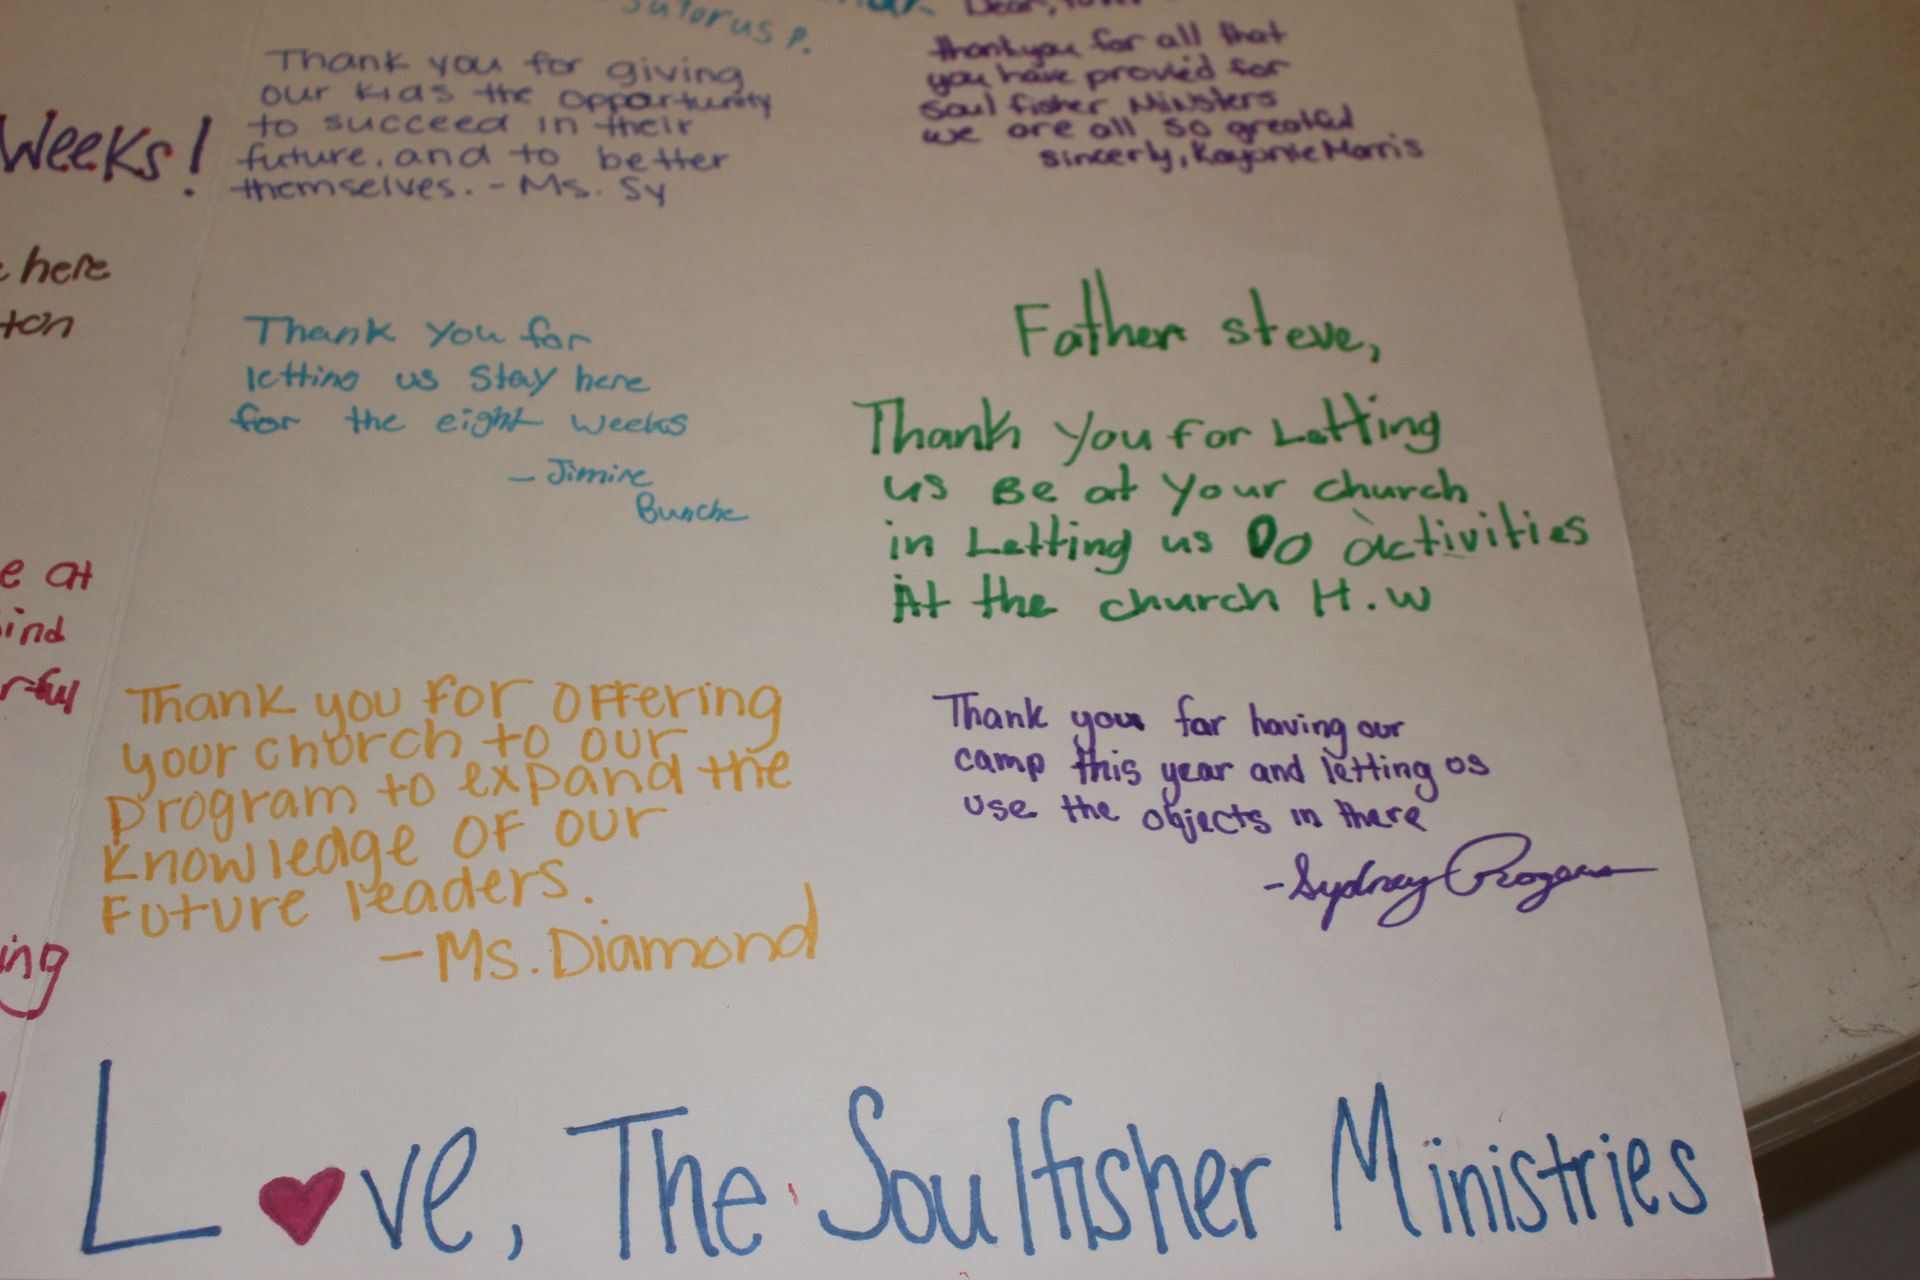 Weeks!
here
ton
e at
ind
rful
ing
Suterus P.
Thank you for giving
our kids the opportunity
to succeed in their
future, and to better
themselves. - Ms. Sy
Dear,
thankyou for all that
you have provied for
Soul fisher Ministers
we are all so greatful
sincerly, Kayonie Morris
Thank you for
letting us stay here
for the eight weeks
- Jimire
Bunche
Father Steve,
Thank you for Letting
us Be at your church
in Letting us Do activities
At the church H.W
Thank you for offering
your church to our
program to expand the
knowledge of our
future leaders.
- Ms. Diamond
Thank you for having our
camp this year and letting us
use the objects in there
- Sydney Rogers
Love, The Soulfisher Ministries